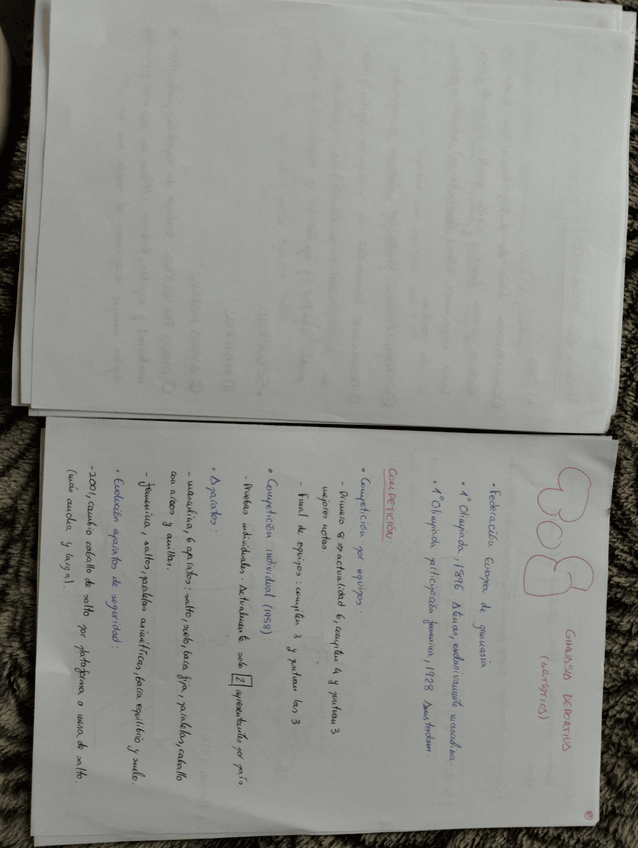 GIMNASIA DEPORTIVA
(ARTÍSTICA)
• Federación Europea de gimnasia
• 1ª Olimpiada, 1896 Atenas, exclusivamente masculina.
• 1ª Olimpiada participación femenina, 1928 Amsterdam
COMPETICIÓN
• Competición por equipos:
- Primero 8 en actualidad 6, compiten 4 y puntúan 3
mejores notas.
- Final de equipos: compiten 3 y puntúan los 3
• Competición individual (1958):
- Pruebas individuales. Actualmente solo 2 representantes por país.
• Aparatos:
- masculina, 6 aparatos: salto, suelo, barra fija, paralelas, caballo
con arcos y anillas.
- femenina, saltos, paralelas asimétricas, barra equilibrio y suelo.
• Evolución aparatos de seguridad:
- 2001, cambio caballo de salto por plataforma o mesa de salto.
(más ancha y larga).